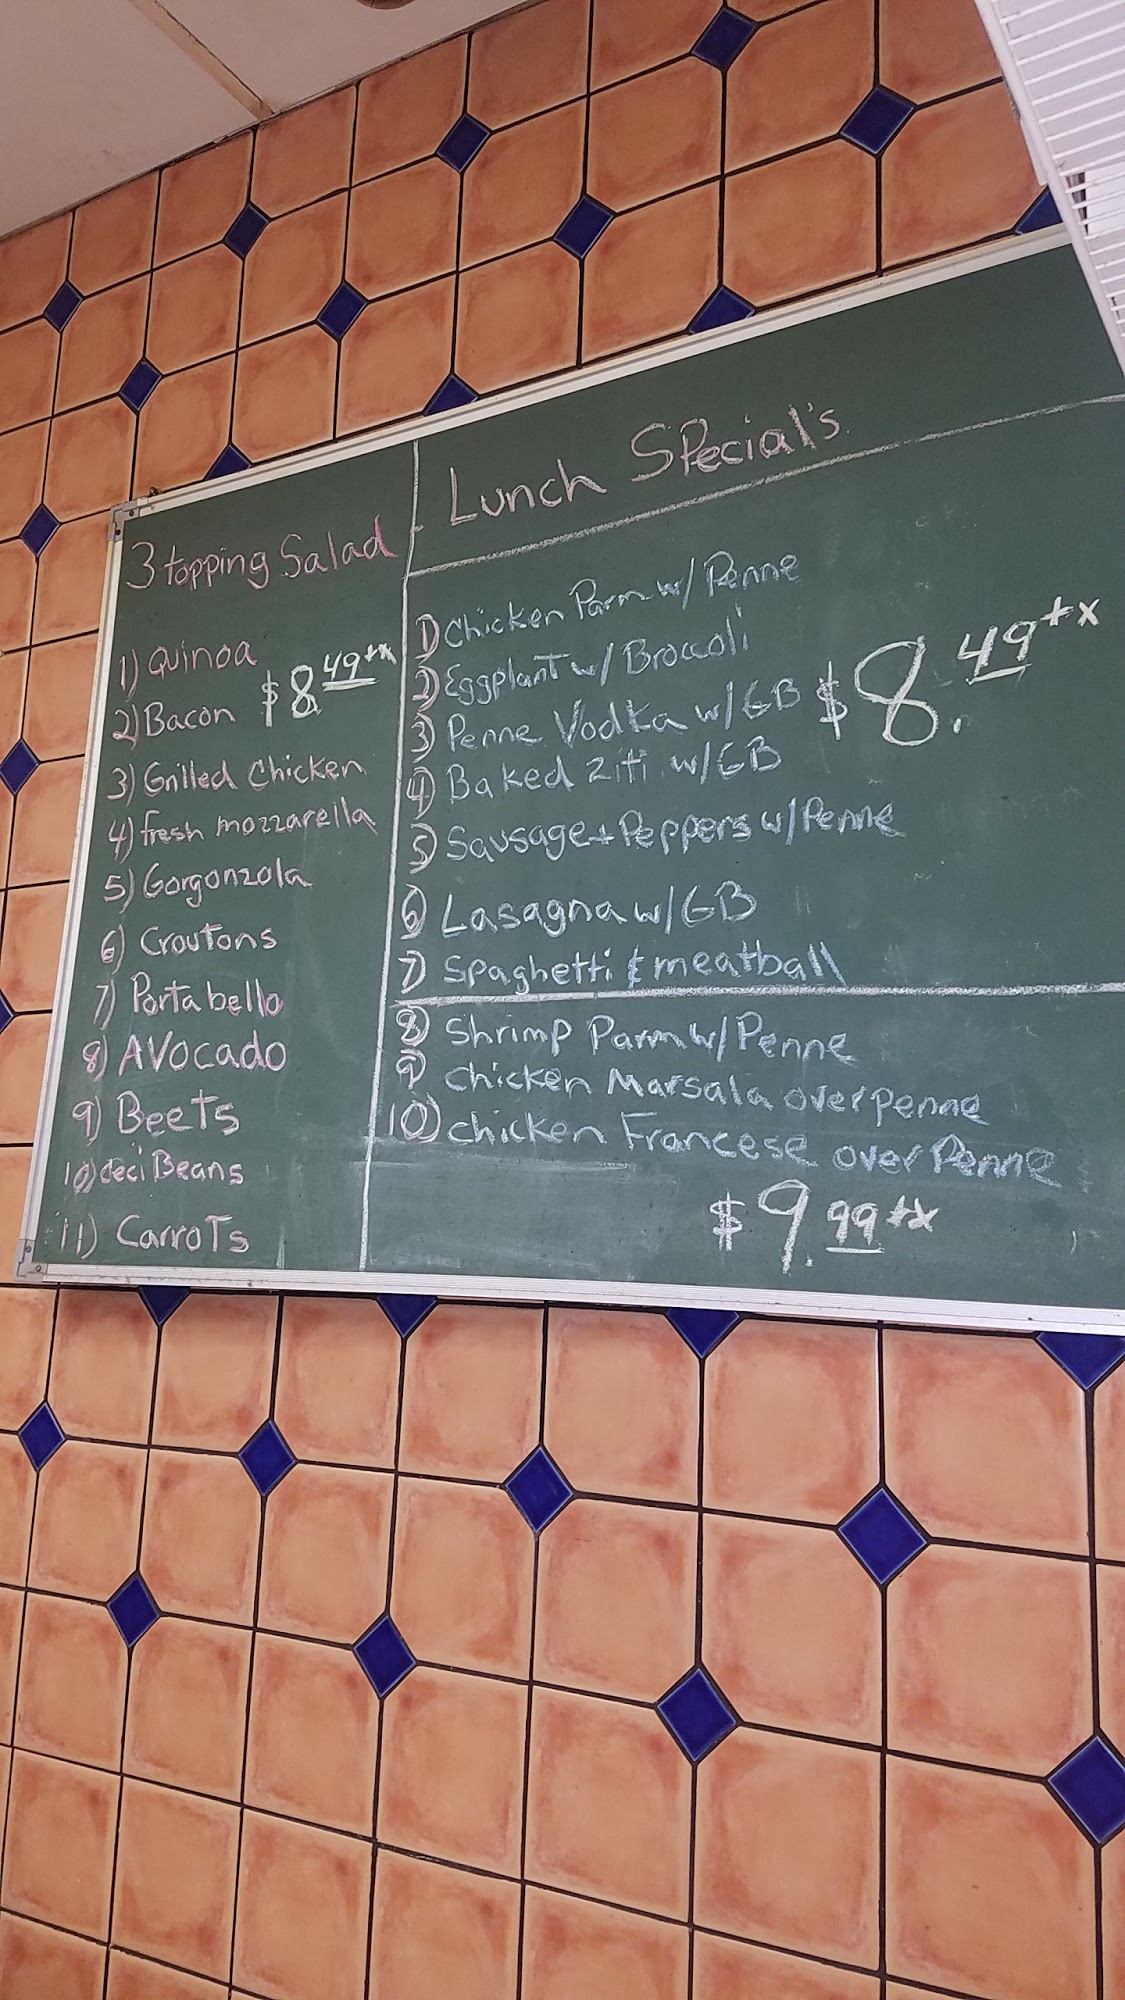 3 topping Salad
1) Quinoa
$8.49+tx
2) Bacon
3) Grilled Chicken
4) fresh mozzarella
5) Gorgonzola
6) Croutons
7) Portabello
8) AVocado
9) BeeTs
10) deci Beans
11) CarroTs
Lunch SPecial's
1) Chicken Parm w/ Penne
2) Eggplant w/ Broccoli
3) Penne Vodka w/GB
$8.49+x
4) Baked Ziti w/GB
5) Sausage + Peppers w/Penne
6) Lasagna w/GB
7) Spaghetti & meatball
8) Shrimp Parm w/Penne
9) Chicken Marsala over penne
10) chicken Francese over Penne
$9.99+tx